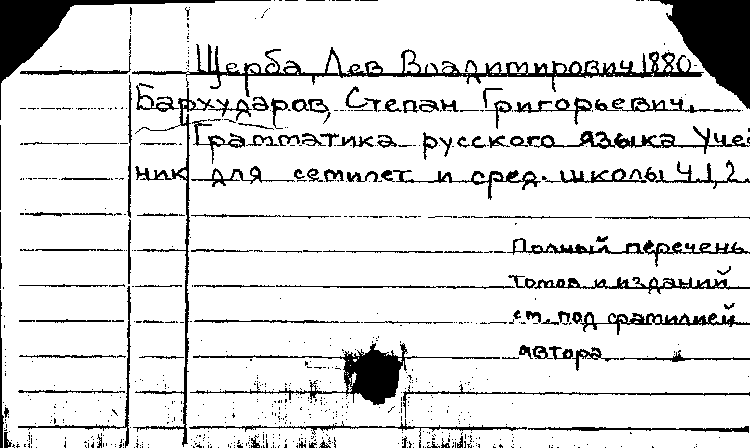 Щерба, Лев Владимирович 1880-
Бархударов, Степан Григорьевич.
Грамматика русского языка Учеб
ник для семилет. и сред. школы Ч.1,2.
Полный перечень
томов и изданий
см. под фамилией
автора.